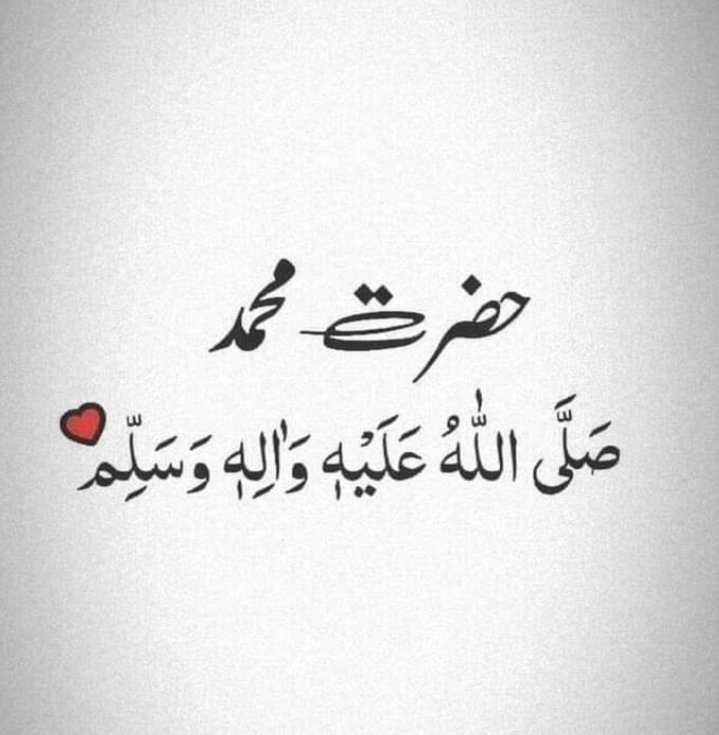 حضرت محمد
صَلَّی اللّٰهُ عَلَیْہِٖ وَاٰلِہٖ وَسَلِّم